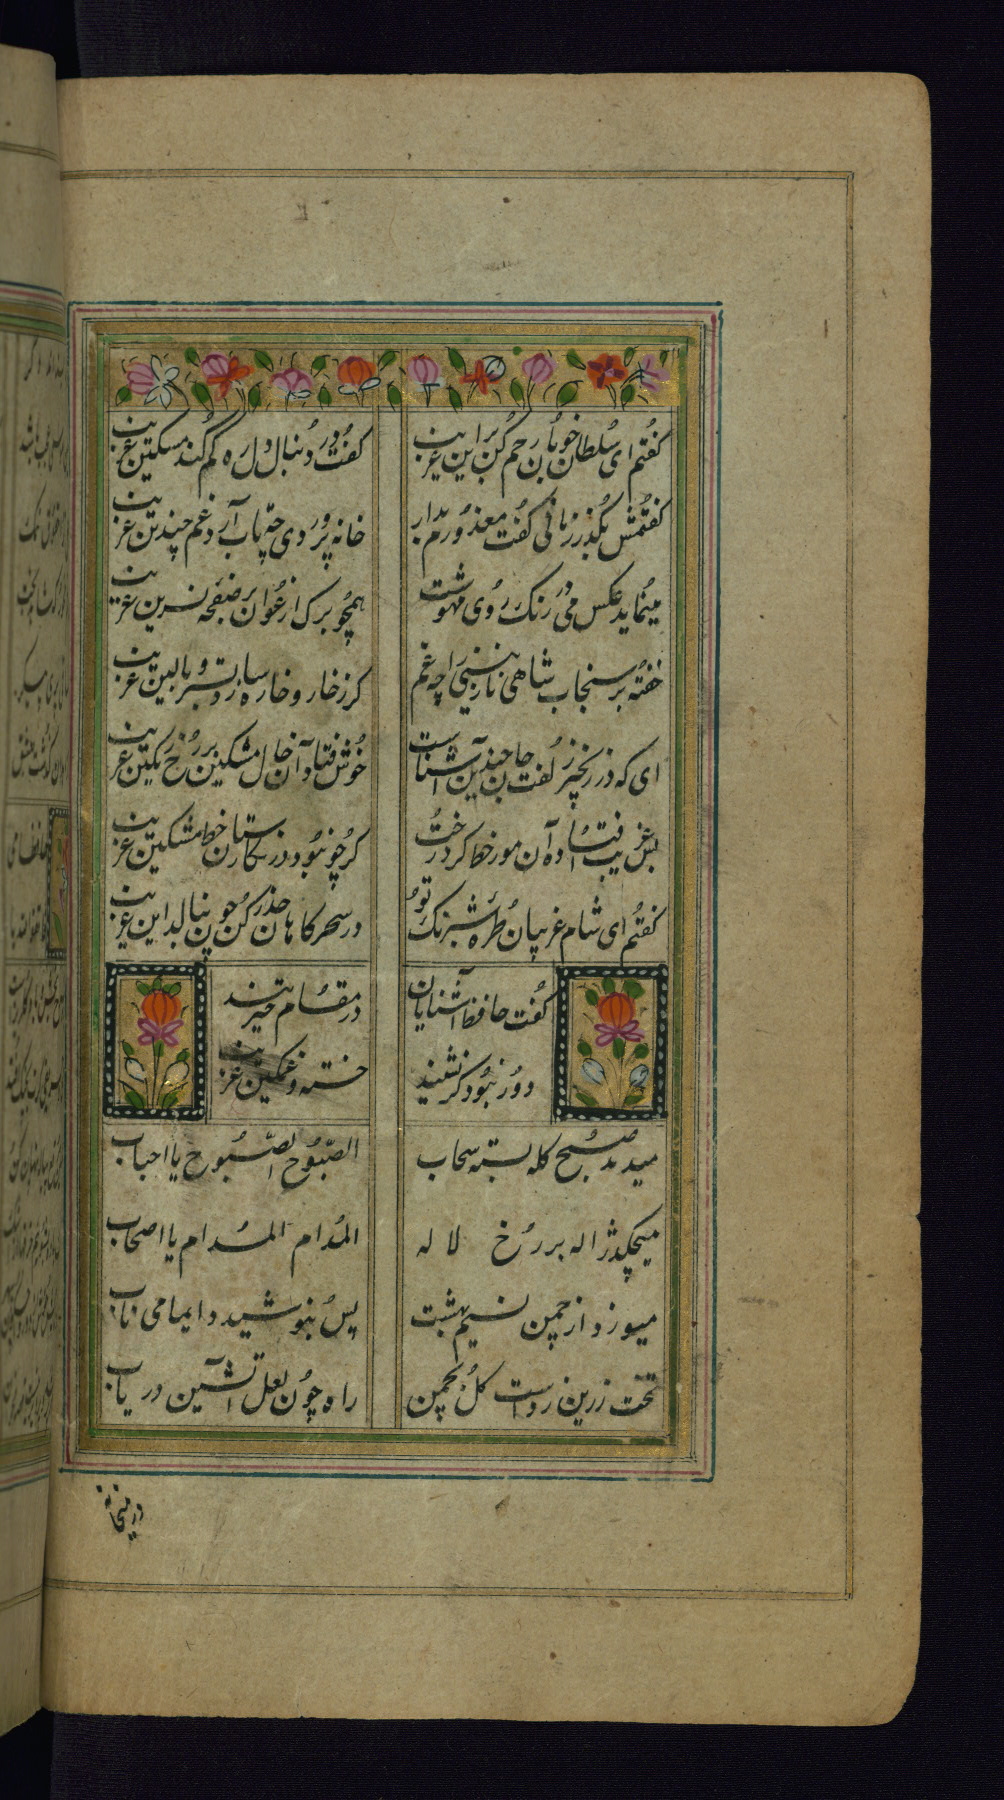 گفتم ای سلطان خوبان رحم کن برین غریب
گفت در دنبال دل ره گم کند مسکین غریب
گفتمش بگذر زمانی گفت معذورم بدار
خانه پروردی چه تاب آرد غم چندین غریب
مینماید عکس می در رنک روی مهوشت
همچو برک ارغوان بر صفحه نسرین غریب
خفته بر سنجاب شاهی نازنینی را چه غم
کر ز خار و خاره سازد بستر و بالین غریب
ای که در زنجیر زلفت جان چندین آشناست
خوش فتاد آن خال مشکین بر رخ رنکین غریب
بس غریب افتاده آن مور خط کرد رخت
کرچه نبود در نکارستان خط مشکین غریب
گفتم ای شام غریبان طره شبرنک تو
در سحرکاهان حذر کن چون بنالد این غریب
گفت حافظ آشنایان
در مقام حیرتند
دور نبود کر نشیند
خسته و غمکین غریب
میدمد صبح کله بسته سحاب
الصبوح الصبوح یا احباب
میچکد ژاله بر رخ لاله
المدام المدام یا اصحاب
میوزد از چمن نسیم بهشت
پس بنوشید دایما می ناب
تخت زرین زد است کل بچمن
راح چون لعل آتشین دریاب
در میخانه